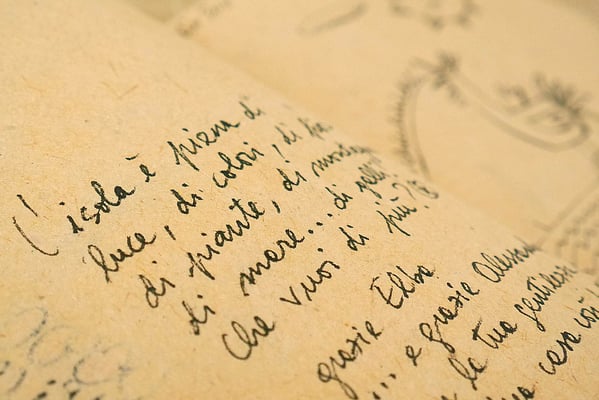 L'isola è piena di
luce, di colori, di
di piante, di
di mare... di
Che vuoi di più?
grazie Elba
... e grazie
la tua gentilezza
casa